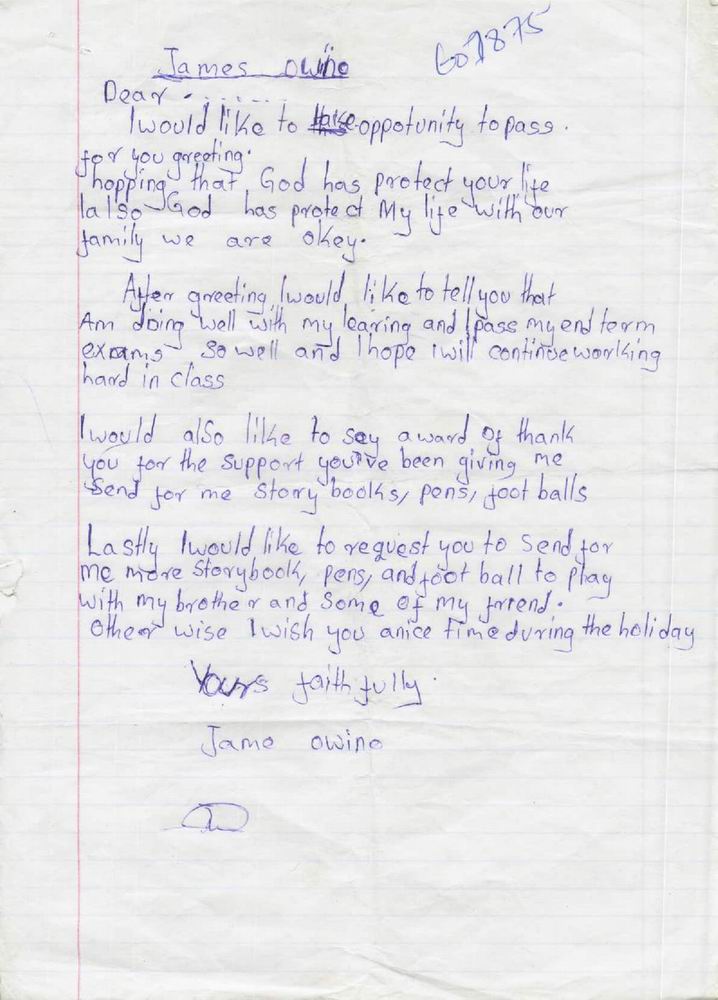 607875
James Owino
Dear . . . . . . .
I would like to take oppotunity to pass .
for you greeting.
hopping that God has protect your life
I also God has protect My life with our
family we are okey.
After greeting I would like to tell you that
Am doing well with my learing and I pass my end term
exams so well and I hope i will continue working
hard in class
I would also lilke to say a ward of thank
you for the support you've been giving me
Send for me Story books, pens, foot balls
Lastly I would like to request you to Send for
me more Storybook, pens, and foot ball to play
with my brother and Some of my friend.
Other wise I wish you a nice time during the holiday
Yours faith fully.
Jame owino